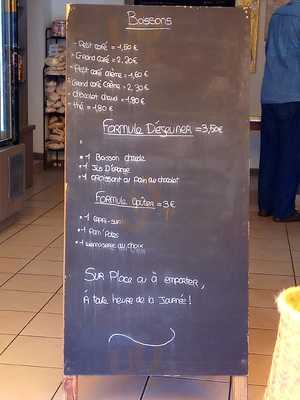 Boissons
- Petit café = 1,50 €
- Grand café = 2,20€
- Petit café crème = 1,60 €
- Grand café crème = 2,30 €
- chocolat chaud = 1,80€
- thé = 1,80 €
Formule Déjeuner = 3,50€
*1 Boisson chaude
*1 Jus D'orange
*1 croissant ou Pain au chocolat
Formule Goûter = 3€
*1 Capri-sun
*1 Pom'Potes
*1 viennoiserie au choix
Sur Place ou à emporter,
À toute heure de la Journée!